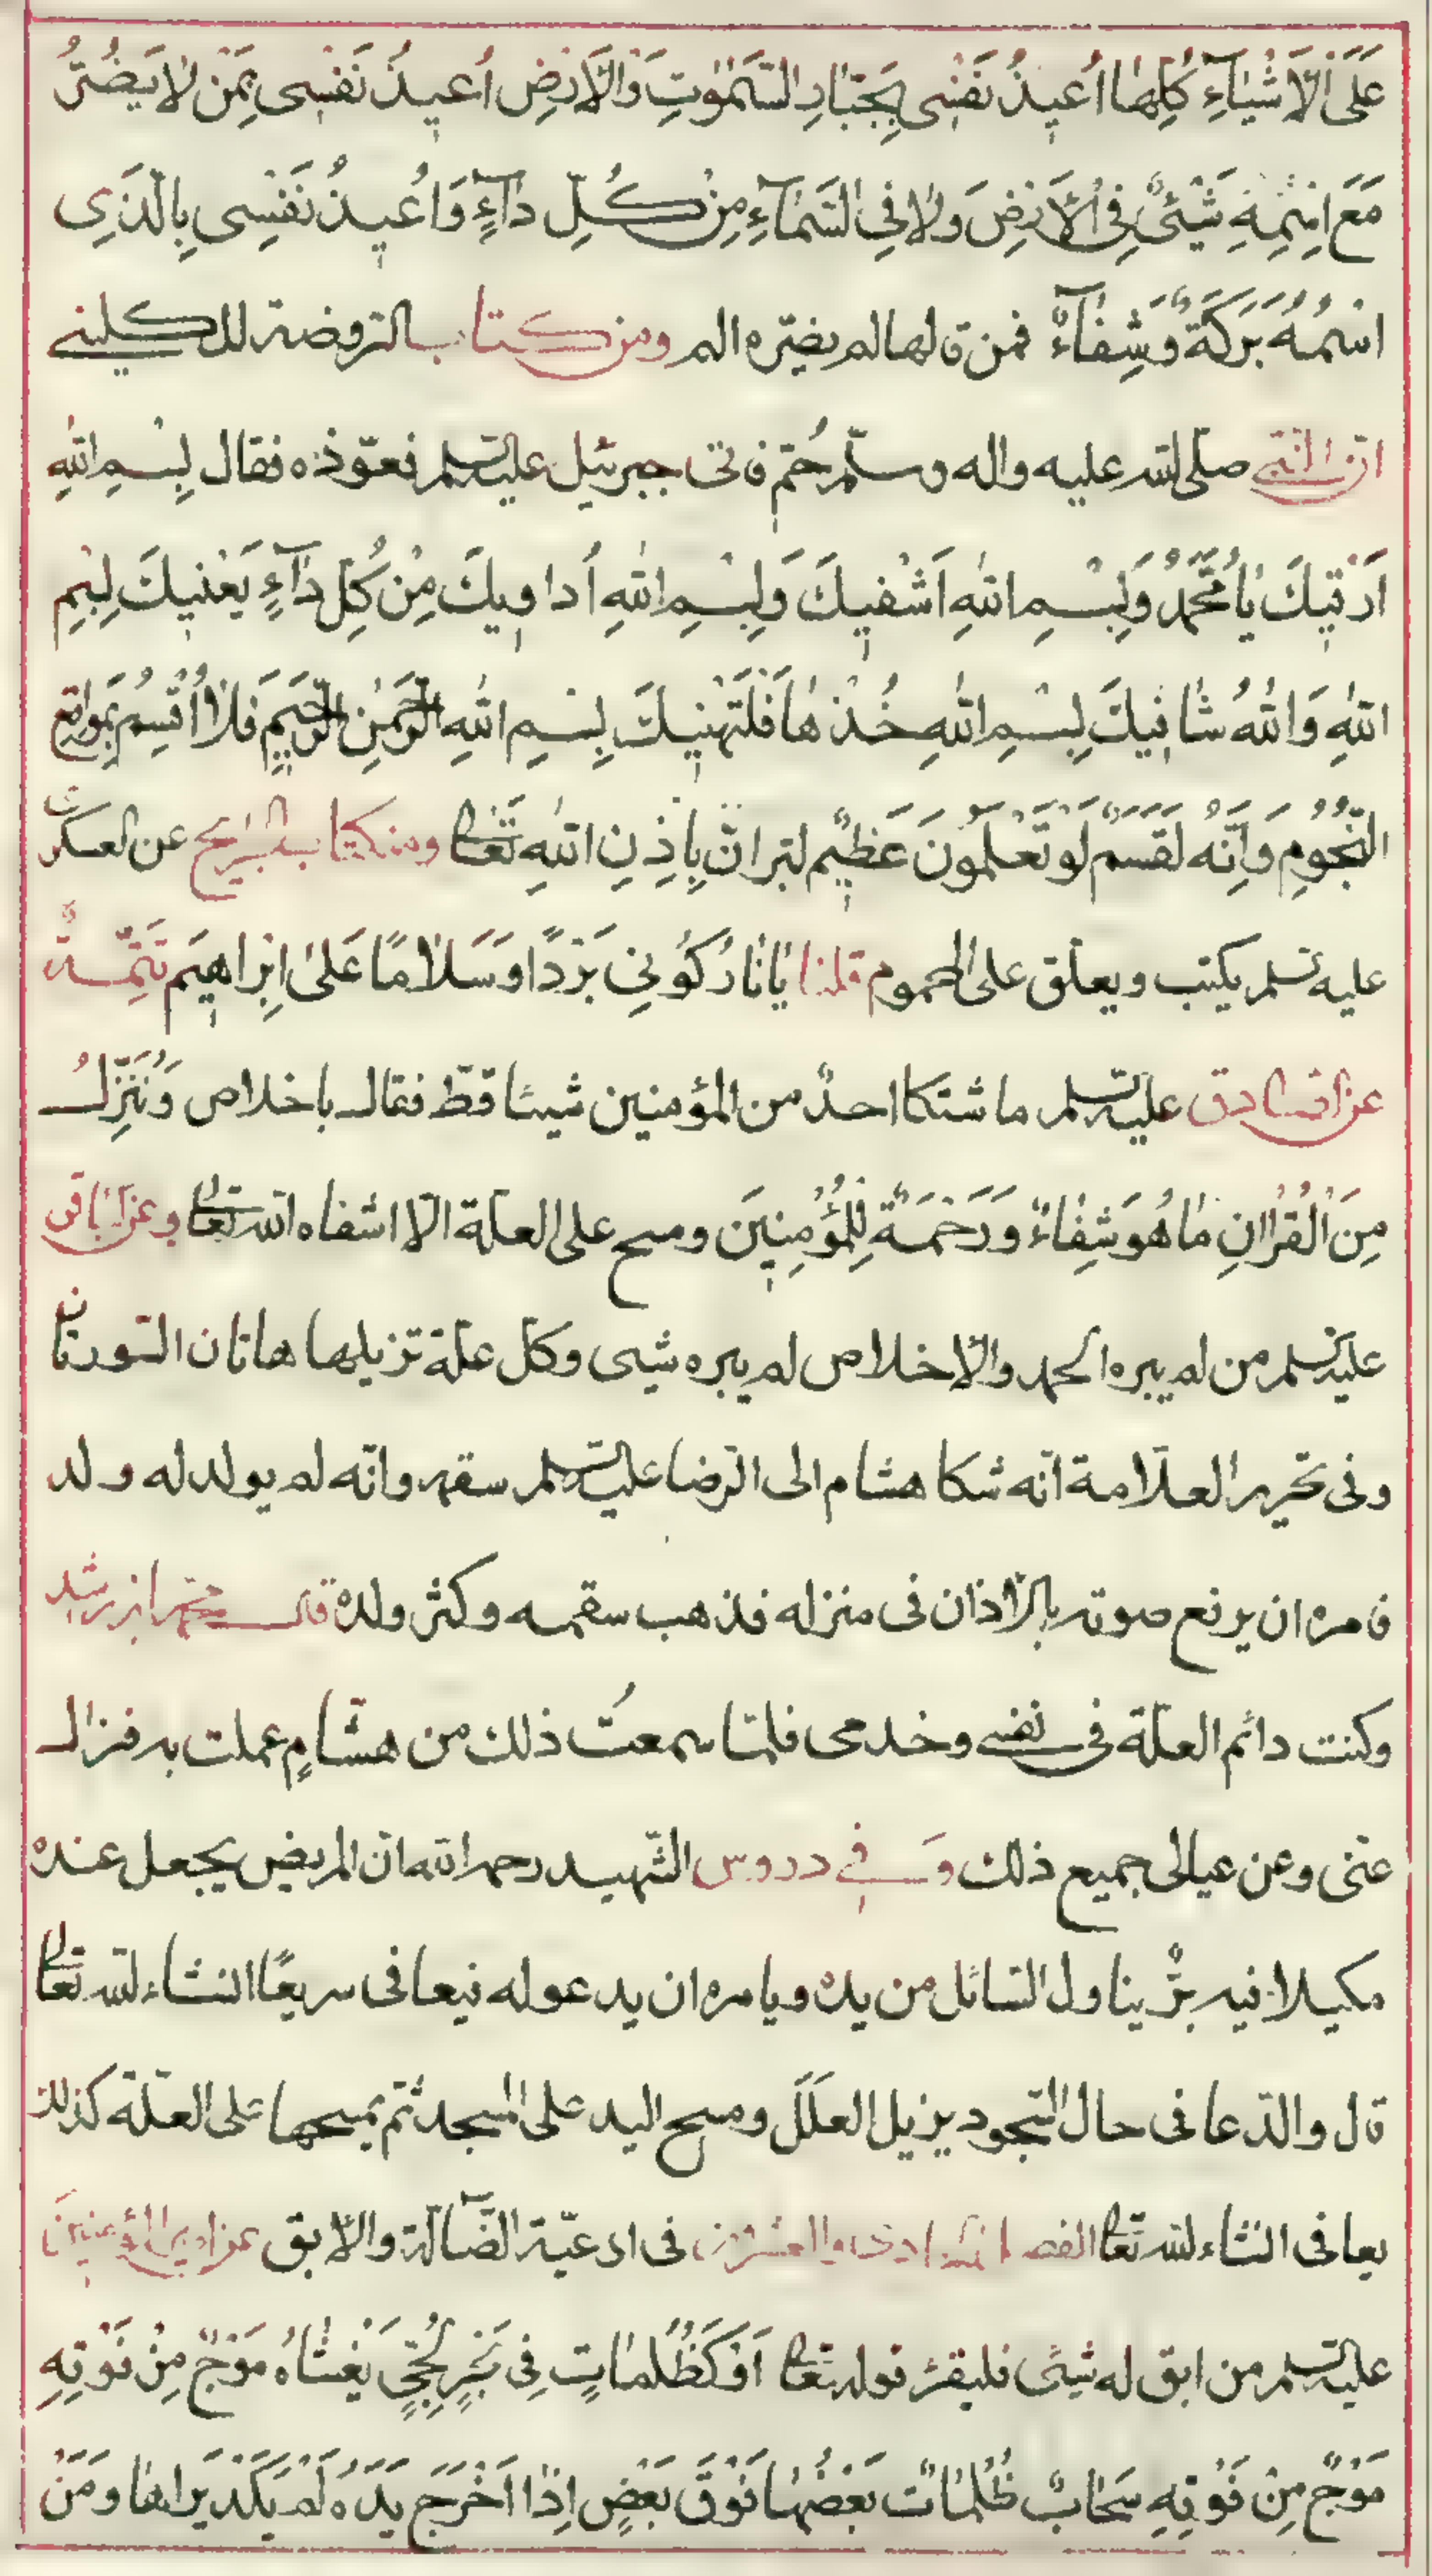 عَلَى الْاَشْيَآءِ كُلِّهَا اُعيذُ نَفْسى بِجَبّارِ السَّمٰوٰتِ وَالْاَرْضِ اُعيذُ نَفْسى بِمَنْ لا يَضُرُّ
مَعَ اسْمِهِ شَيْئٌ فِى الْاَرْضِ وَلا فِى السَّمآءِ مِنْ كُلِّ دآءٍ وَاُعيذُ نَفْسِى بِالَّذِى
اسْمُهُ بَرَكَةٌ وَشِفآءٌ فمن قالها لم يضرّه الم ومن كتاب الروضة للكلينے
انّ النّبى صلى لله عليه واله وسلّم حُمّ فاتى جبرئيل عليه السلم فعوّذه فقال بِسْمِ اللهِ
اَرْقيكَ يٰا مُحَمَّدُ وَبِسْمِ اللهِ اَشْفيكَ وَبِسْمِ اللهِ اُداويكَ مِنْ كُلِّ دآءٍ يَعْنيكَ بِسْمِ
اللهِ وَاللهُ شٰافيكَ بِسْمِ اللهِ خُذْهٰا فَلْتَهْنيكَ بِسْمِ اللهِ الرَّحْمٰنِ الرَّحيمِ فَلا اُقْسِمُ بِمَواقِعِ
النُّجُومِ وَاِنَّهُ لَقَسَمٌ لَوْ تَعْلَمُونَ عَظيٌم لتبرانّ بِاِذِنِ اللهِ تَعٰالى ومن كتاب الجرايح عن العسكرى
عليه السلم يكتب ويعلّق على المحموم قلنا يٰا نٰارُ كُونِى بَرْدًا وَسَلامًا عَلىٰ اِبْراهيمَ تَتِمَّةٌ
عن الصّادق عليه السلم ما شتكا احدٌ من المؤمنين شيئا قطّ فقال باخلاص وَنُنَزِّلُ
مِنَ الْقُرْاٰنِ مٰا هُوَ شِفٰاءٌ وَرَحْمَةٌ لِلْمُؤْمِنِينَ ومسح على العلّة الّا اشفاه الله تعٰالى وعن الباقر
عليه السلم من لم يبره الحمد والاخلاص لم يبره شيى وكل علّة تزيلها هاتان السّورتان
وفى تحرير العلّامة انّه شكا هشام الى الرضا عليه السلم سقمه وانّه لم يولد له ولد
فامره ان يرفع صوته بالاذان فى منزله فذهب سقمه وكثر ولده قال محمد ابن رشد
وكنت دائم العلّة فى نفسى وخدمى فلمّا سمعتُ ذلك من هشّامٍ عملت به فزال
عنّى وعن عيالى جميع ذلك وَفى دروس الشّهيد رحمه الله انّ المريض يجعل عنده
مكيلا فيه برّ يناول السّائل من يده ويامره ان يدعوله فيعافى سريعًا انشاء لله تعٰالى
قال والدّعا فى حال السّجود يزيل العلَلَ ومسح اليد على المسجد ثمّ يمسحها على العلّة كذلك
يعافى انشاء لله تعٰالى الفصل الحادى والعشرون فى ادعيّة الضّآلّة والابق عن اميرالمؤمنينَ
عليه السلم من ابق له شيىً فليقرء قوله تعٰالى اَوْ كَظُلُمٰاتٍ فِى بَحْرٍ لُجِّىٍّ يَغْشٰاهُ مَوْجٌ مِنْ فَوْقِهِ
مَوْجٌ مِنْ فَوْقِهِ سَحٰابٌ ظُلُمٰاتٌ بَعْضُهٰا فَوْقَ بَعْضٍ اِذٰا اَخْرَجَ يَدَهُ لَمْ يَكَدْ يَراهٰا وَمَنْ